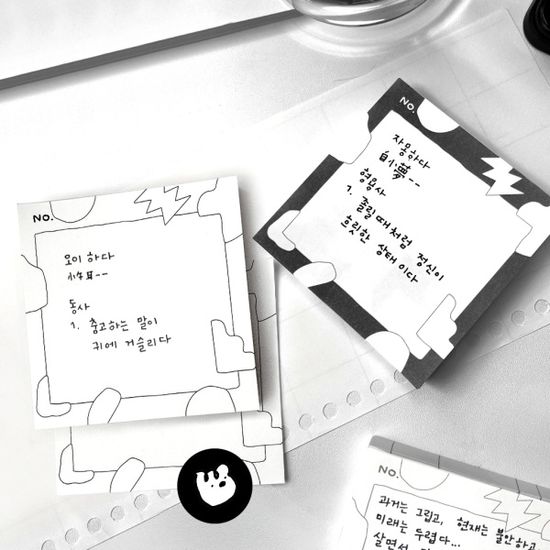 NO.
오이 하다
忤耳--
동사
1. 충고하는 말이
귀에 거슬리다
NO.
자몽하다
自懜--
형용사
1. 졸릴 때처럼 정신이
흐릿한 상태이다
NO.
과거는 그립고, 현재는 불안하고
미래는 두렵다...
살면서